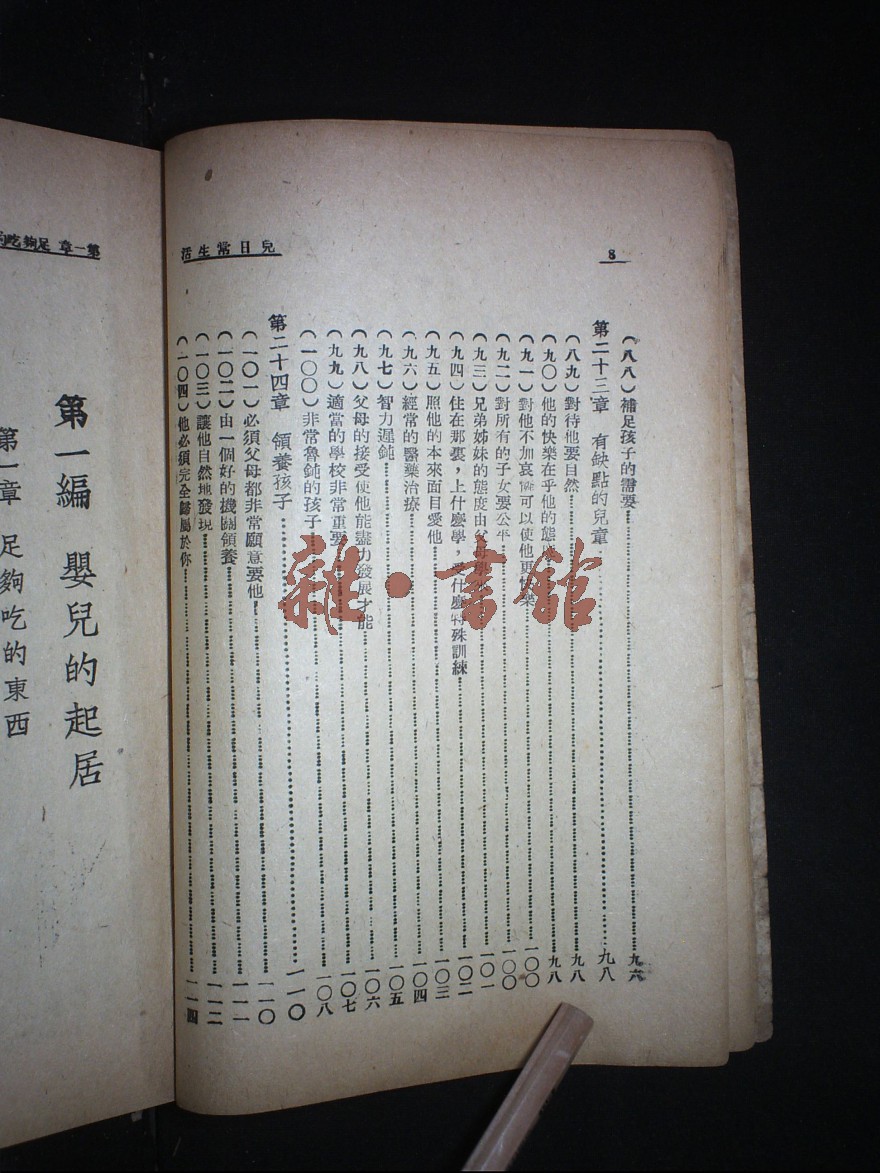 8
兒日常生活
（八八）補足孩子的需要……九六
第二十三章 有缺點的兒童……九八
（八九）對待他要自然……九八
（九〇）他的快樂在乎他的態度……九八
（九一）對他不加哀憐可以使他更快樂……一〇〇
（九二）對所有的子女要公平……一〇〇
（九三）兄弟姊妹的態度由父母……一〇一
（九四）住在那裏，上什麼學，受什麼特殊訓練……一〇二
（九五）照他的本來面目愛他……一〇三
（九六）經常的醫藥治療……一〇四
（九七）智力遲鈍……一〇五
（九八）父母的接受使他能盡力發展才能……一〇六
（九九）適當的學校非常重要……一〇七
（一〇〇）非常魯鈍的孩子……一〇八
第二十四章 領養孩子……一一〇
（一〇一）必須父母都非常願意要他……一一〇
（一〇二）由一個好的機關領養……一一一
（一〇三）讓他自然地發現……一一二
（一〇四）他必須完全歸屬於你……一一四
雜·書館
第一章 足夠吃
第一編 嬰兒的起居
第一章 足夠吃的東西